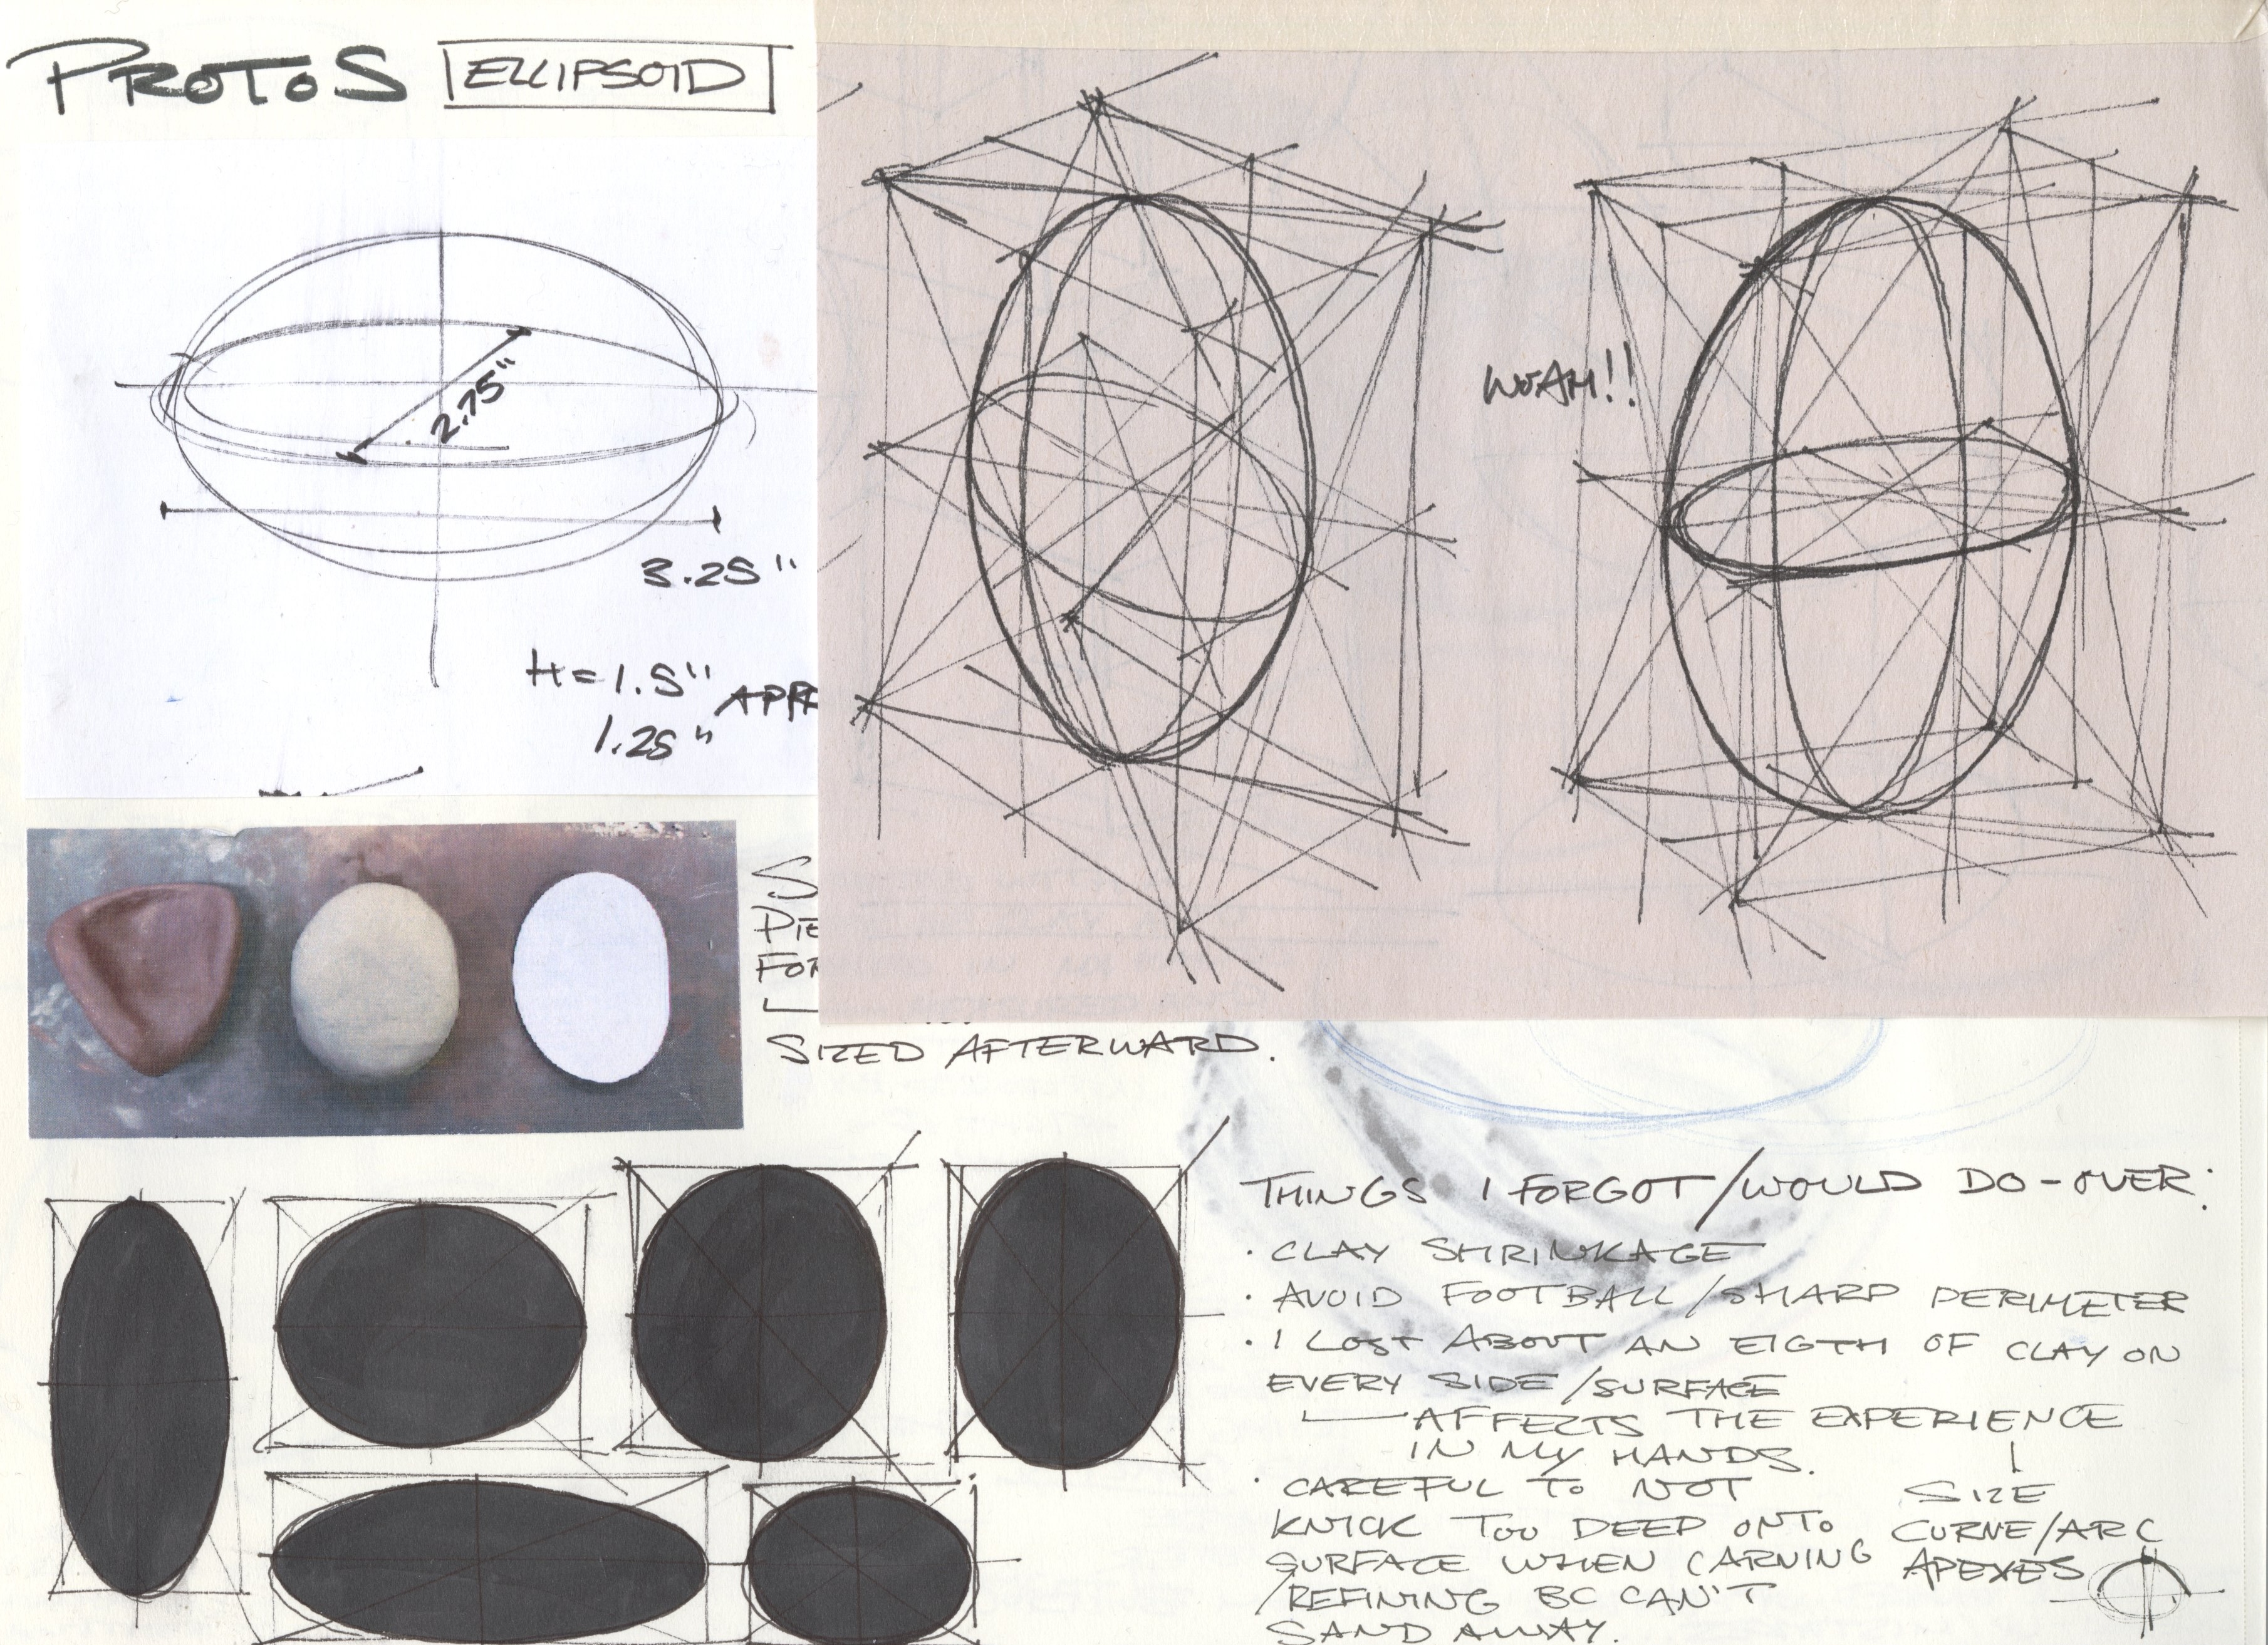 PROTOS ELLIPSOID
2.75"
3.25"
H = 1.5"
1.25"
WOAH!!
SIZED AFTERWARD.
THINGS I FORGOT/WOULD DO-OVER:
· CLAY SHRINKAGE
· AVOID FOOTBALL/SHARP PERIMETER
· I LOST ABOUT AN EIGTH OF CLAY ON
EVERY SIDE/SURFACE
AFFECTS THE EXPERIENCE
IN MY HANDS.
· CAREFUL TO NOT
KNICK TOO DEEP ONTO
SURFACE WHEN CARVING
/REFINING BC CAN'T
SAND AWAY.
SIZE
CURVE/ARC
APEXES